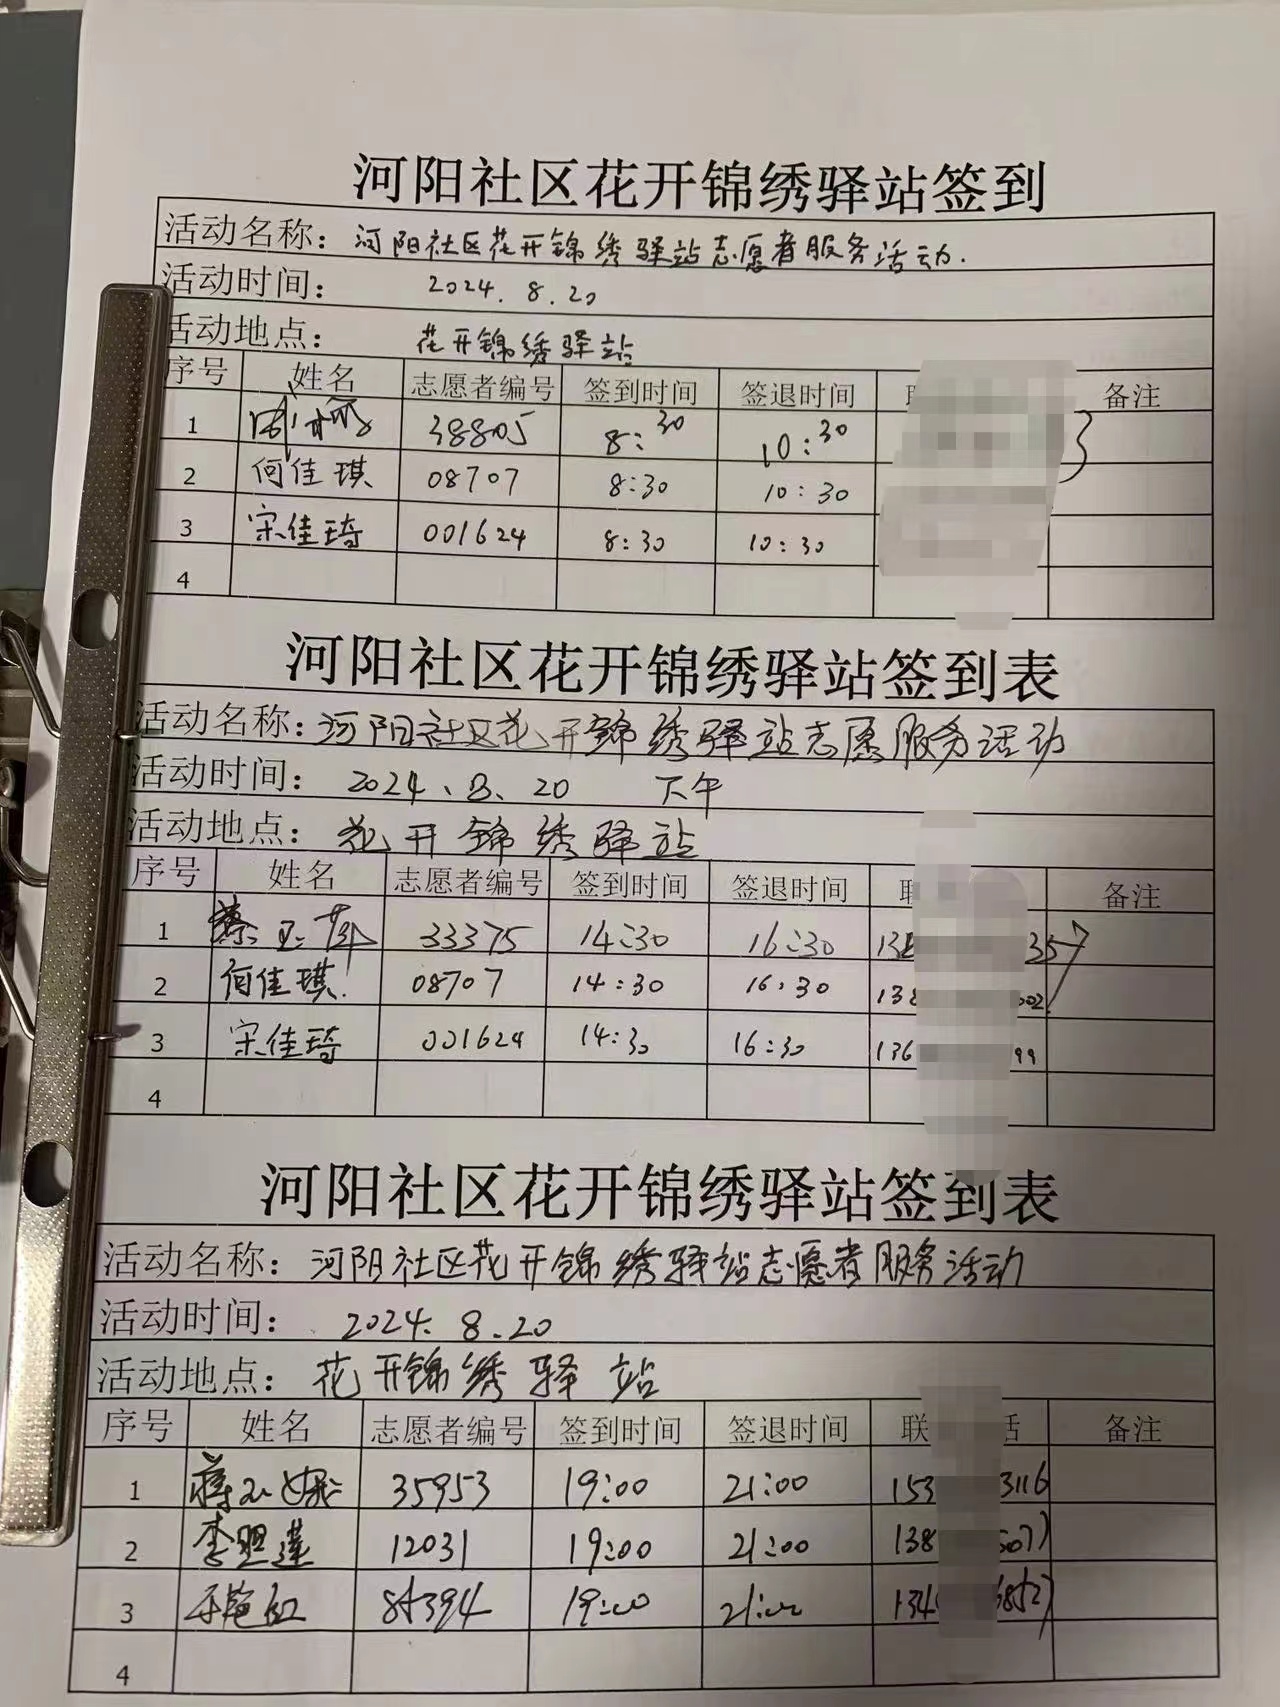 河阳社区花开锦绣驿站签到
活动名称：河阳社区花开锦绣驿站志愿者服务活动.
活动时间： 2024.8.20
活动地点： 花开锦绣驿站
序号 姓名 志愿者编号 签到时间 签退时间 备注
1 38805 8:30 10:30
2 何佳琪 08707 8:30 10:30
3 宋佳琦 001624 8:30 10:30
4
河阳社区花开锦绣驿站签到表
活动名称：河阳社区花开锦绣驿站志愿服务活动
活动时间： 2024.8.20 下午
活动地点： 花开锦绣驿站
序号 姓名 志愿者编号 签到时间 签退时间 备注
1 蔡玉萍 33375 14:30 16:30 35
2 何佳琪 08707 14:30 16:30 138 002
3 宋佳琦 001624 14:30 16:30 136 99
4
河阳社区花开锦绣驿站签到表
活动名称：河阳社区花开锦绣驿站志愿者服务活动
活动时间： 2024.8.20
活动地点：花开锦绣驿站
序号 姓名 志愿者编号 签到时间 签退时间 联 话 备注
1 35953 19:00 21:00 153 3116
2 12031 19:00 21:00 138
3 19:00 21:00 134
4